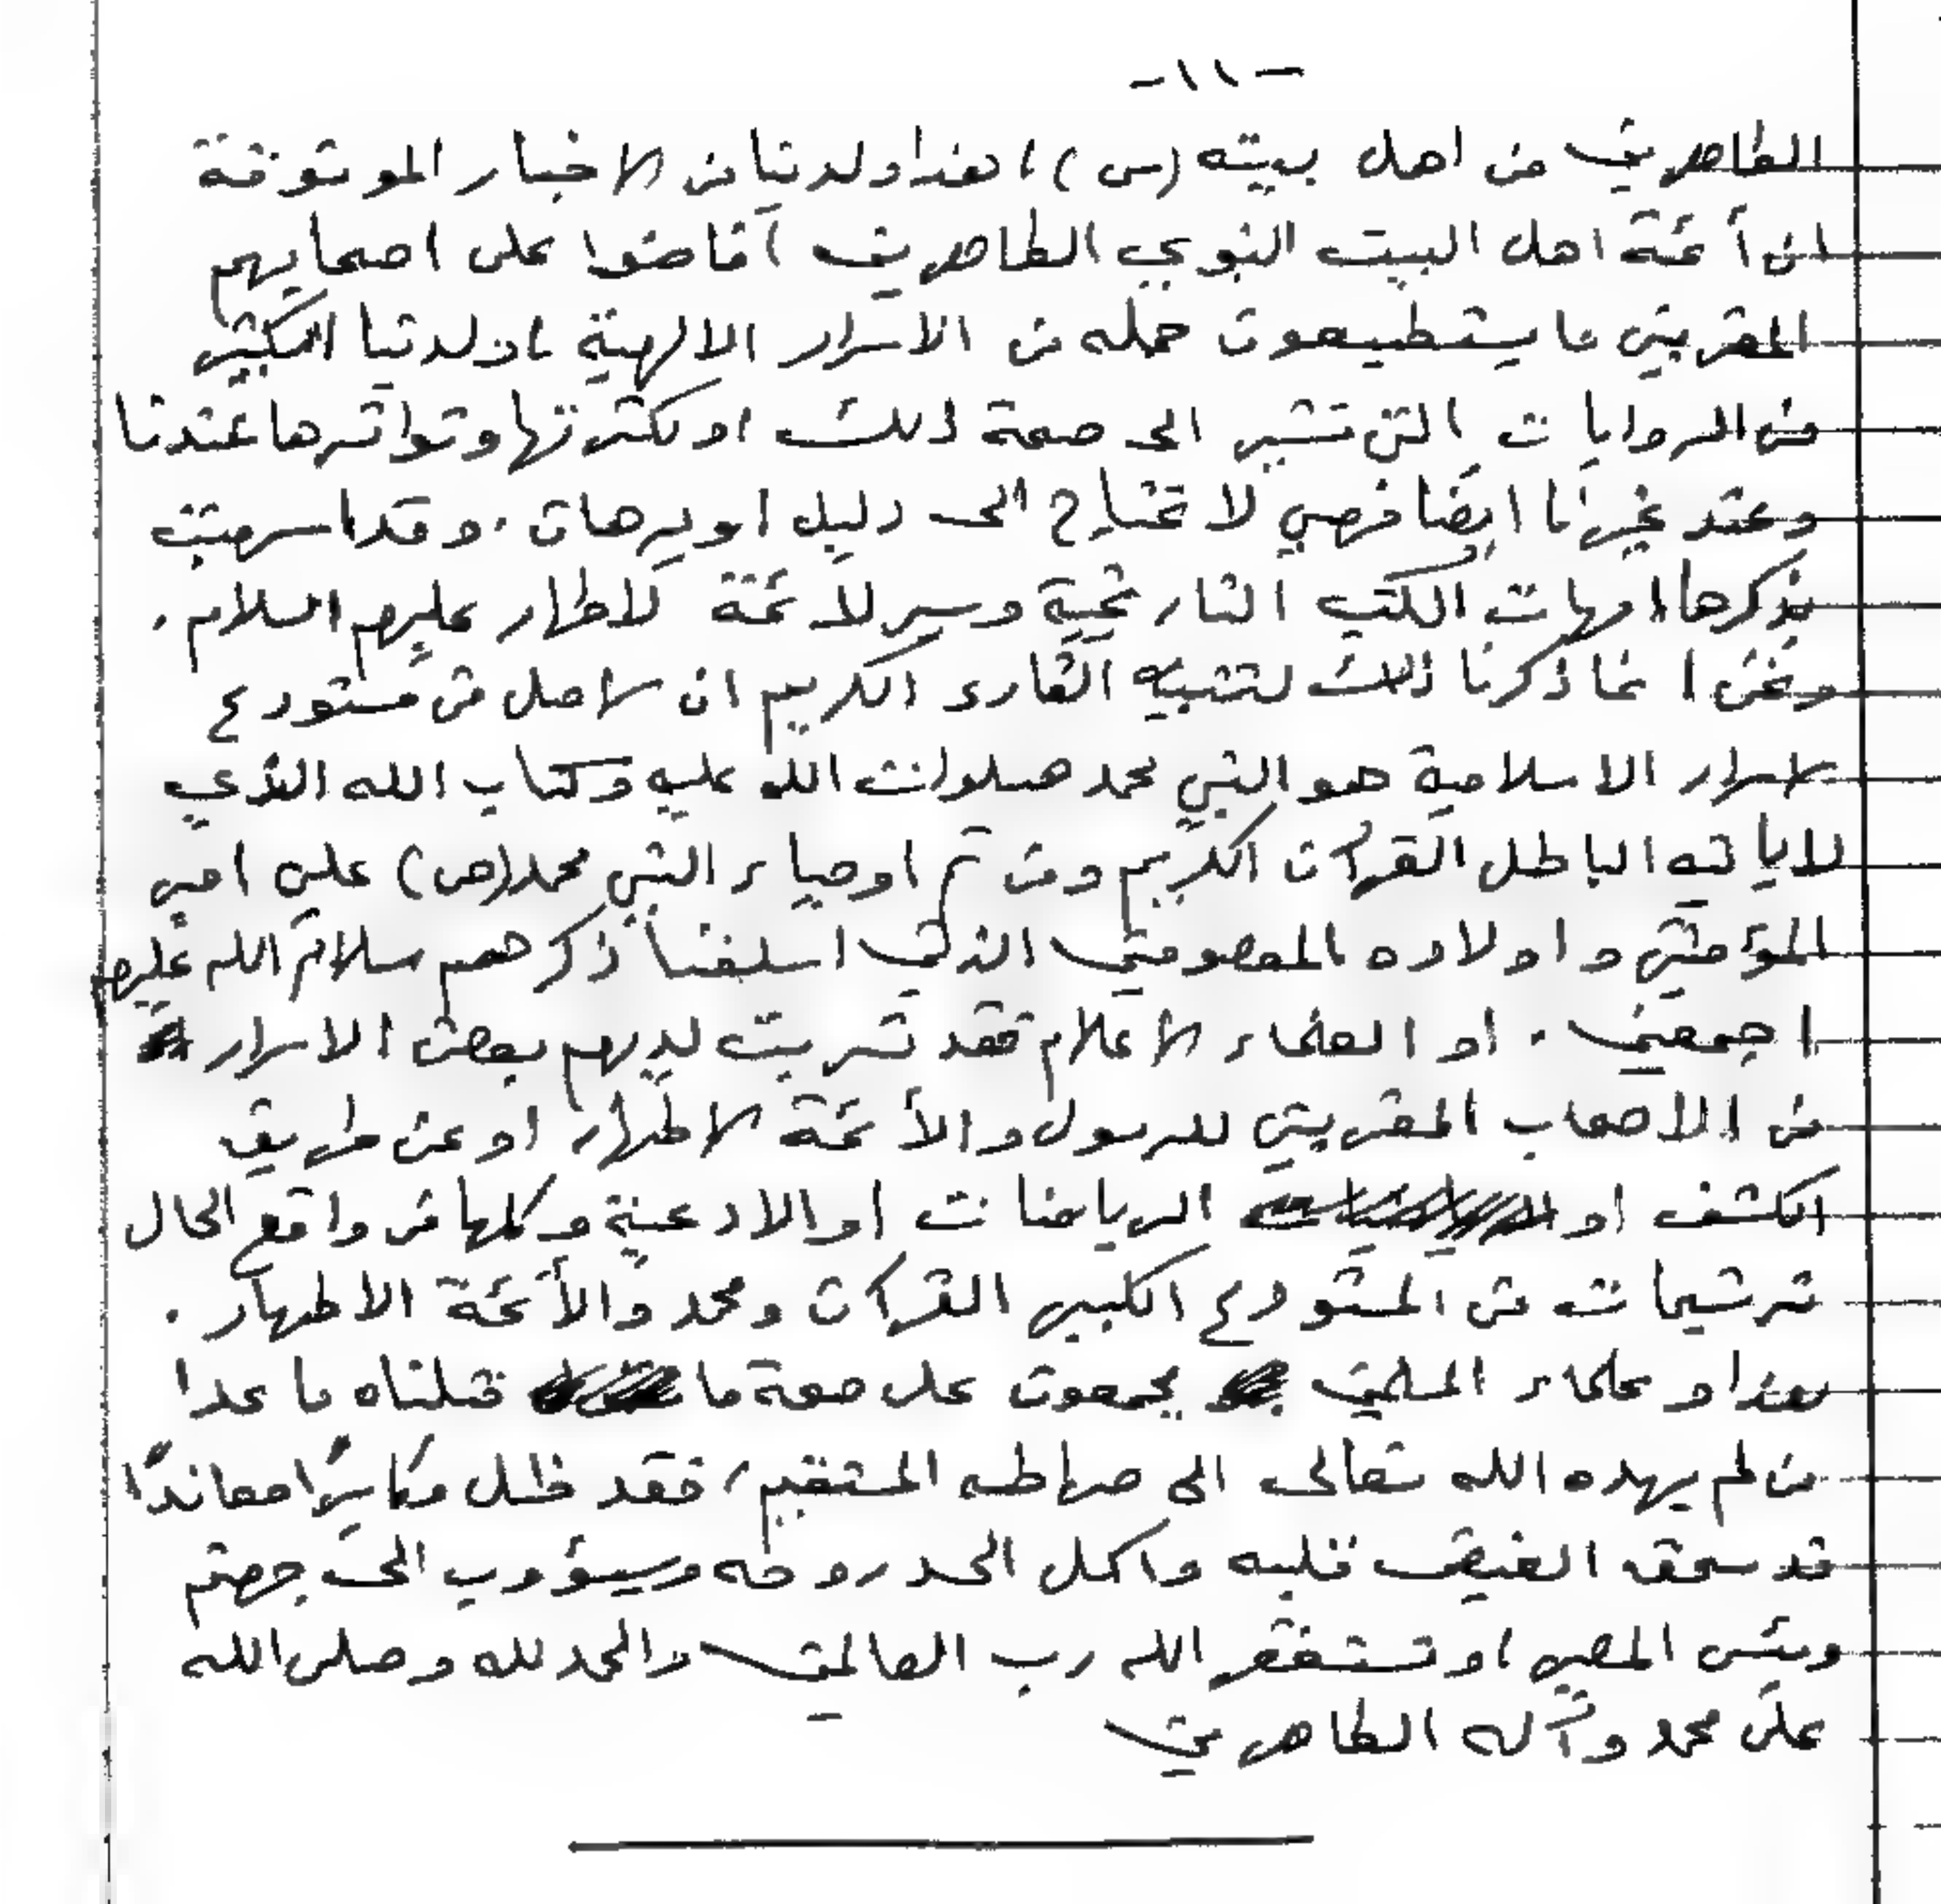 -١١-
الطاهرين من اهل بيته (س)، هذا ولدينا من الاخبار الموثوقة
ان أئمة اهل البيت النبوي الطاهرين افاضوا على اصحابهم
المقربين ما يستطيعون حمله من الاسرار الالهية، اذ لدينا الكثير
من الروايات التي تشير الى صحة ذلك او كثرتها وتواترها عندنا
وعند غيرنا ايضا فهي لا تحتاج الى دليل او برهان. وقد اسهبت
بذكرها امهات الكتب التاريخية وسير للائمة لاطهار عليهم السلام.
ونحن انما ذكرنا ذلك لتنبيه القارى الكريم ان الاصل من مستودع
الاسرار الاسلامية هو النبي محمد صلوات الله عليه وكتاب الله الذي
لا يأتيه الباطل القرآن الكريم ومن ثم اوصياء النبي محمد (ص) علي امير
المؤمنين واولاده المعصومين الذين اسلفنا ذكرهم سلام الله عليهم
اجمعين. او العلماء الاعلام فقد تسربت لديهم بعض الاسرار
من الاصحاب المقربين للرسول والأئمة الاطهار او عن طريق
الكشف او الرياضات او الادعية وكلها من واقع الحال
ترشيحات من المستودع الكبير القرآن ومحمد والأئمة الاطهار.
هذا وعلماء المسلمين يجمعون على صحة ما قلناه ما عدا
من لم يهده الله تعالى الى صراطه المستقيم، فقد ظل مكابرًا معاندًا
قد سحق الغيض قلبه واكل الحسد روحه وسيؤوب الى جهنم
وبئس المصير، ونستغفر الله رب العالمين والحمد لله وصلى الله
على محمد وآله الطاهرين